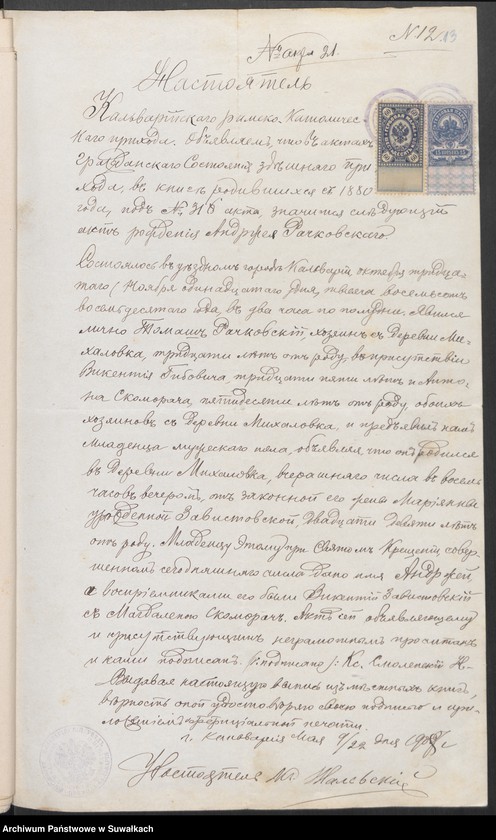 N 12 13
№ акта 21.
Настоятель
Кальварійскаго римско-Католичес-
каго прихода. объявляем, что въ актахъ
Гражданскаго Состоянія, здѣшняго при
хода, въ книгѣ родившихся съ 1880
года, подъ № 316 акта, значится слѣдующій
актъ рожденія Андржея Рачковскаго.
Состоялось въ уѣздномъ городѣ Кальваріи октября тридца
таго / Ноября одинадцатаго дня, тысяча восемьсотъ
восемьдесятаго года, въ два часа по полудни. Явился
лично Томашъ Рачковскій, хозяинъ съ Деревни Ми-
халовка, тридцати лѣтъ отъ роду, въ присутствіи
Викентія Гибовича, тридцати пяти лѣтъ и Анто-
на Скоморача, пятидесяти лѣтъ отъ роду, обоихъ
хозяиновъ съ Деревни Михаловка, и предъявилъ намъ
младенца мужескаго пола, объявляя что онъ родился
въ Деревни Михаловка, вчерашняго числа въ восемь
часовъ вечеромъ, отъ законной его жены Маріянны
урожденной Завистовской, двадцати девяти лѣтъ
отъ роду. Младенцу этому при Святомъ Крещеніи совер-
шенномъ сегодняшняго числа дано имя Андржей,
а воспріемниками его были Викентій Завистовскій
съ Магдаленою Скоморач. Актъ сей объявляющему
и присутствующимъ неграмотнымъ прочитанъ
и нами подписанъ. /: подписано :/ Кс. Смоленскій Н.-
Выдавая настоящую выпись изъ метныхъ книгъ,
вѣрность оной удостовѣряю своею подписью и при-
ложеніемъ оффиціальной печати.
г. Кальварія Мая 9/22 дня 190 г
Настоятель Кс Жалевскій
Archiwum Państwowe w Suwałkach